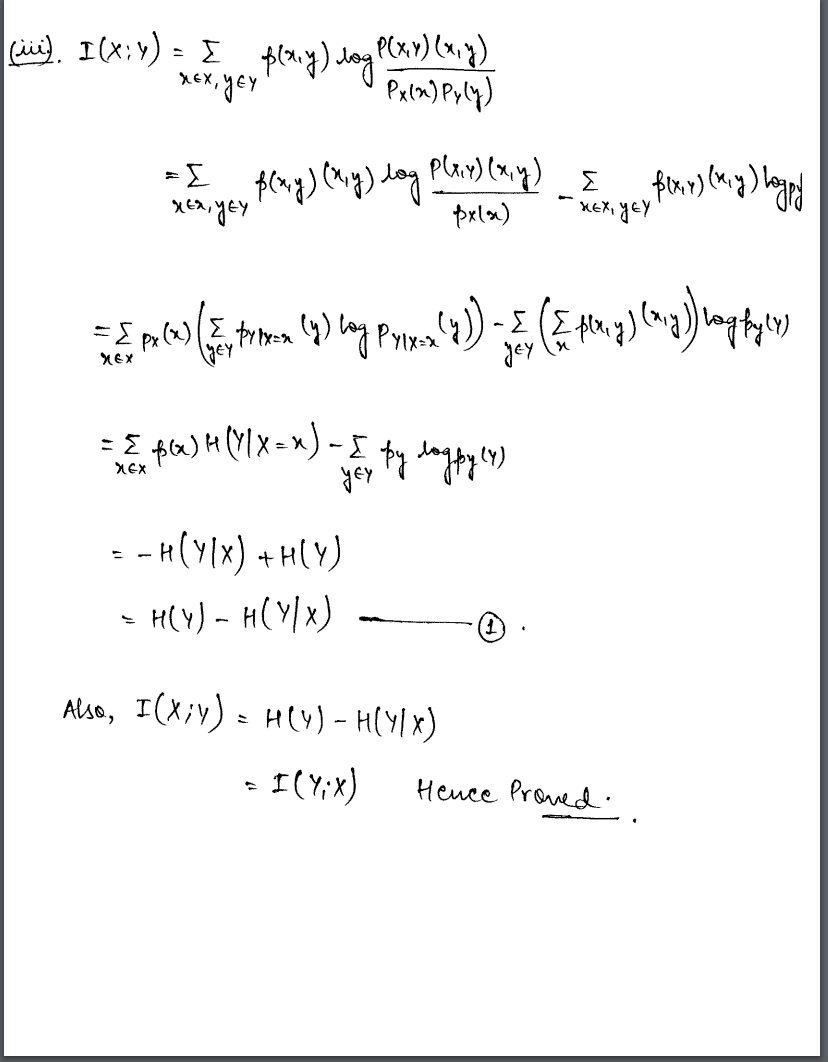 (iii). I(X;Y) = Σ_{x∈X, y∈Y} p(x,y) log P(X,Y)(x,y) / P_X(x) P_Y(y)
= Σ_{x∈x, y∈Y} p(x,y) (x,y) log P(X,Y)(x,y) / p_X(x) − Σ_{x∈X, y∈Y} p(X,Y)(x,y) log py
= Σ_{x∈X} p_X(x) (Σ_{y∈Y} p_{Y|X=x}(y) log P_{Y|X=x}(y)) − Σ_{y∈Y} (Σ_x p(x,y)(x,y)) log p_y(y)
= Σ_{x∈X} p(x) H(Y|X=x) − Σ_{y∈Y} py log p_y(y)
= − H(Y|X) + H(Y)
= H(Y) − H(Y|X) ——— ①.
Also, I(X;Y) = H(Y) − H(Y|X)
= I(Y;X) Hence Proved.